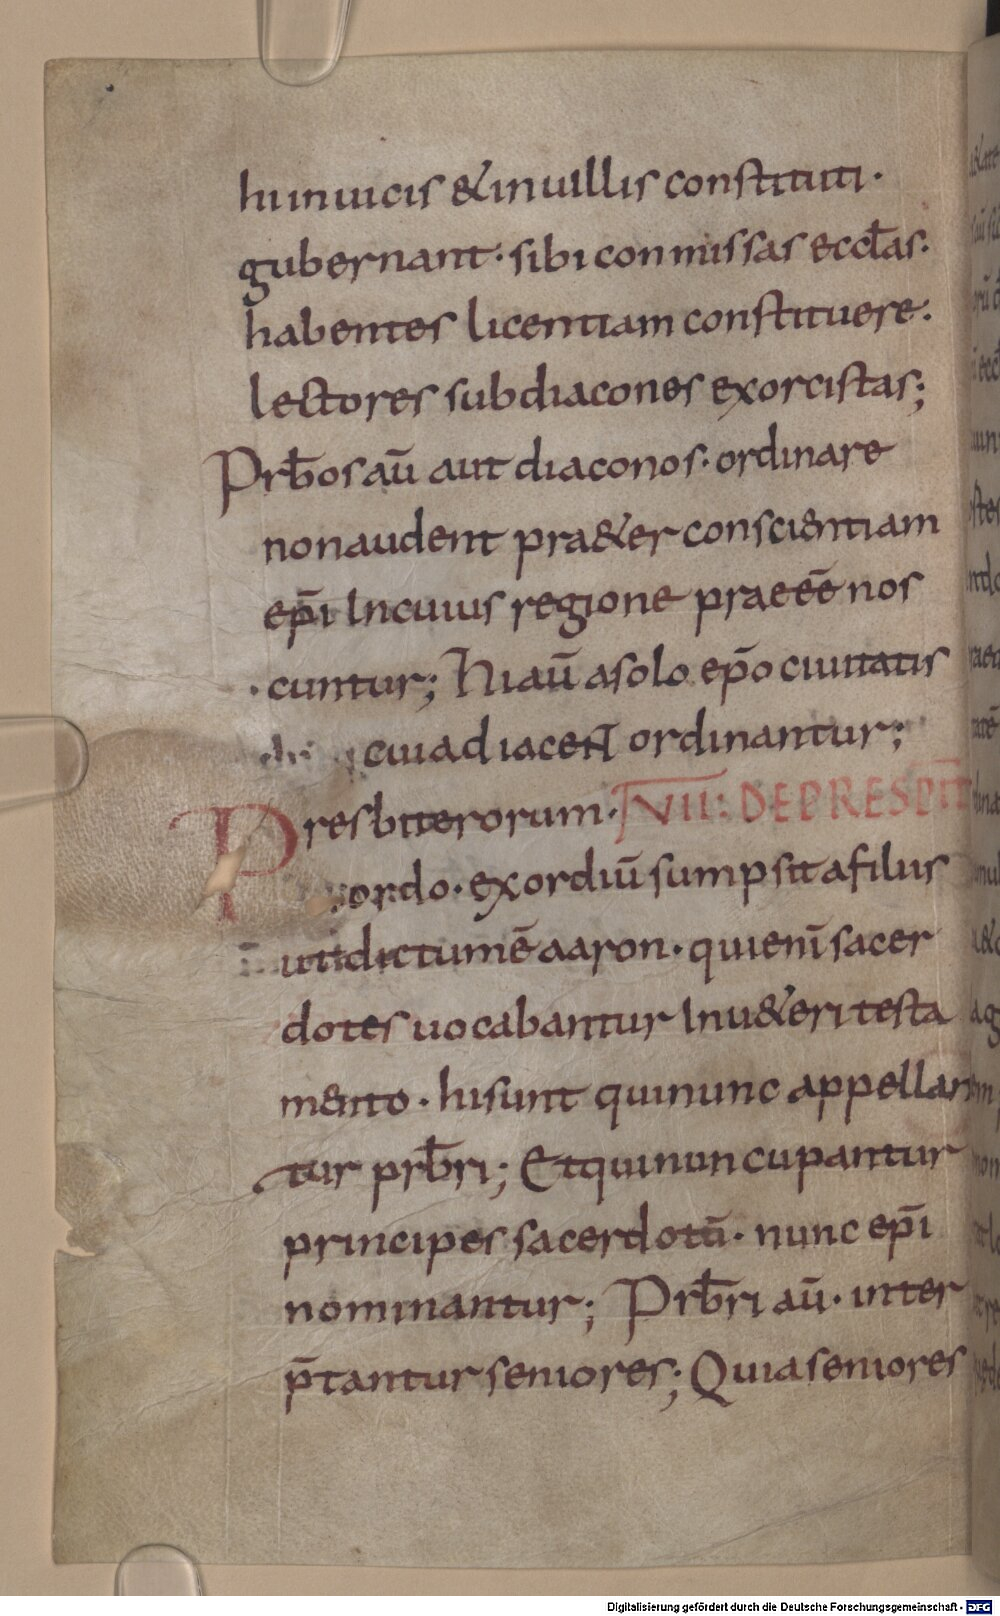 hi inuicis & in uillis constituti·
gubernant· sibi conmissas eccłas·
habentes licentiam constituere·
lectores subdiacones exorcistas;
Prb̄os aū aut diaconos· ordinare
non audent pra&er conscientiam
ep̄i In cuius regione praeēē nos
·cuntur; Hi aū a solo ep̄o ciuitatis
cui adiacent ordinantur;
Presbiterorum· VII: DE PRESPIT
ordo· exordiū sumpsit a filiis
ut dictum ē aaron· qui enī sacer
dotes uocabantur In u&eri testa
mento· hi sunt qui nunc appellan
tur prb̄ri; Et qui nuncupantur
principes sacerdotū· nunc ep̄i
nominantur; Prb̄ri aū· inter
p̄tantur seniores; Quia seniores
Digitalisierung gefördert durch die Deutsche Forschungsgemeinschaft - DFG